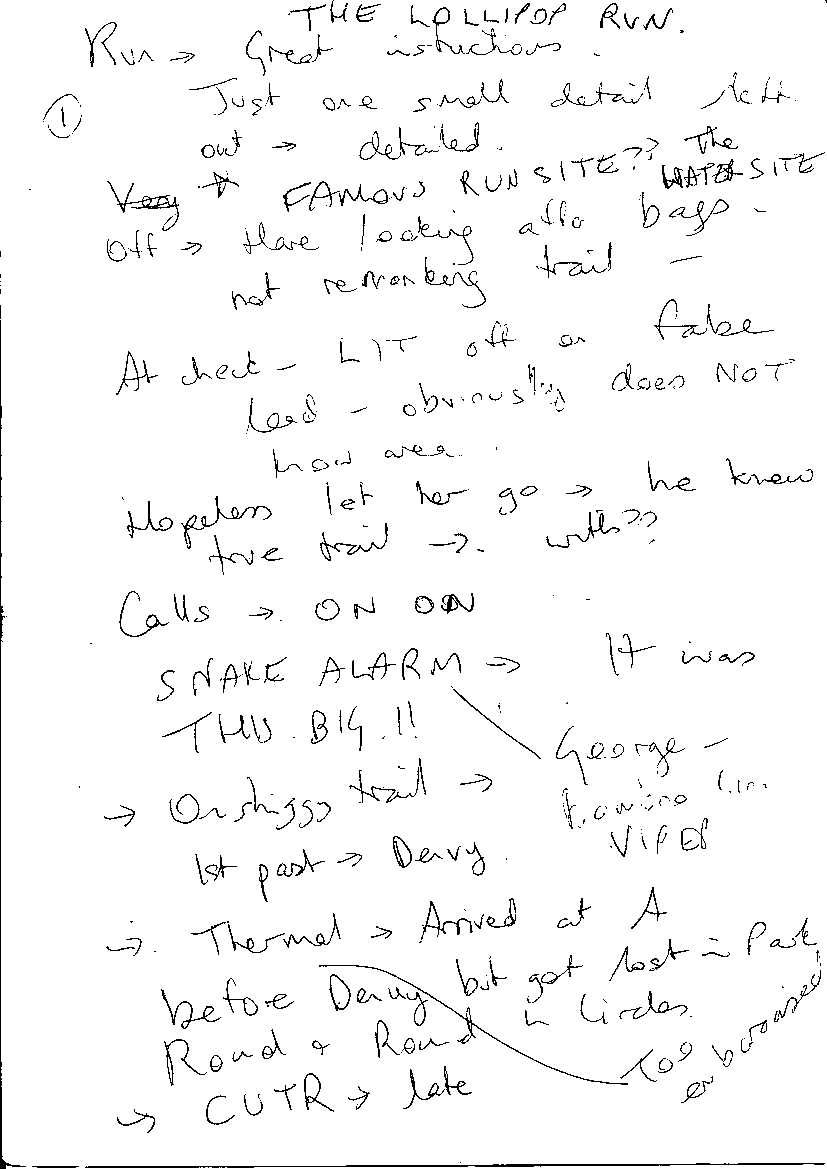 THE LOLLIPOP RUN.
Run → Great istructions.
① Just one small detail left
out → detailed.
Very FAMOUS RUN SITE?? The
WATER SITE
Off → Hare looking after bags -
not remarking trail -
At check - LIT off on false
lead - obviously does NOT
know area.
Hopeless let her go → he knew
true trail →.
Calls → ON ON
SNAKE ALARM → It was
THIS BIG!!
George -
VIPER
→ On shiggy trail →
1st past → Dervy.
→. Thermal → Arrived at A
before Dervy but got lost in Park
Round + Round in Circles.
Too
embarrassed
→ CUTR → late